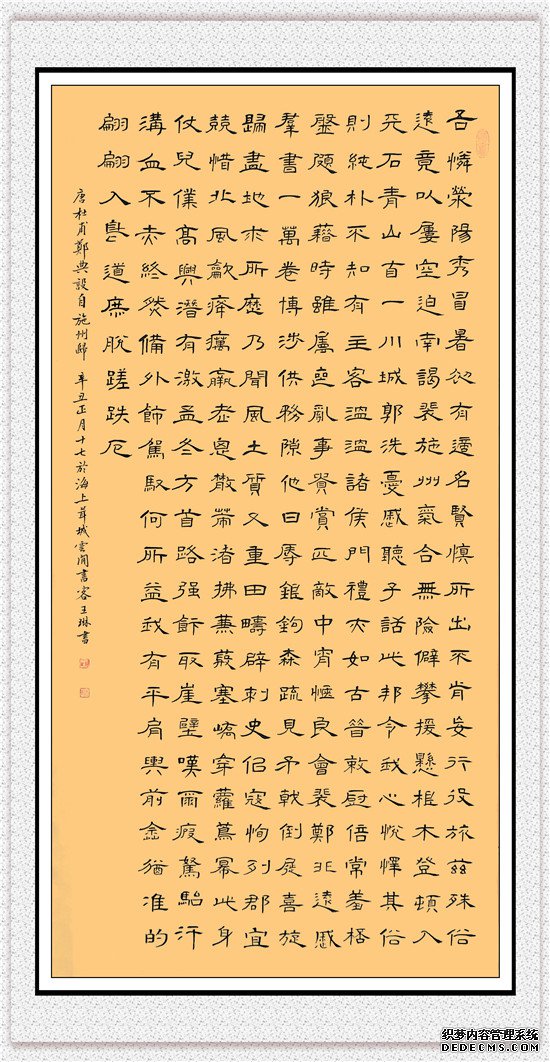 吾憐滎陽秀冒暑初有適名賢慎所出不肯妄行役旅茲殊俗
遠竟以屢空迫南謁裴施州氣合無險僻攀援懸根木登頓入
天石青山自一川城郭洗憂戚聽子話此邦令我心悅懌其俗
則純朴不知有主客溫溫諸侯門禮亦如古昔敕廚倍常羞杯
盤頗狼藉時雖屬喪亂事貴賞匹敵中宵愜良會裴鄭非遠戚
羣書一萬卷博涉供務隙他日辱銀鉤森疏見矛戟倒屣喜旋
歸畫地求所歷乃聞風土質又重田疇辟刺史侣寇恂列郡宜
競惜北風吹瘴癘羸老思散策渚拂蒹葭塞嶠穿蘿蔦冪此身
仗兒僕高興潛有激孟冬方首路强飯取崖壁嘆爾疲駑駘汗
溝血不赤終然備外飾駕馭何所益我有平肩輿前途猶准的
翩翩入鳥道庶脫蹉跌厄
唐杜甫鄭典設自施州歸 辛丑正月十七於海上茸城雲間書客王琳書
织梦内容管理系统
DEDECMS.COM